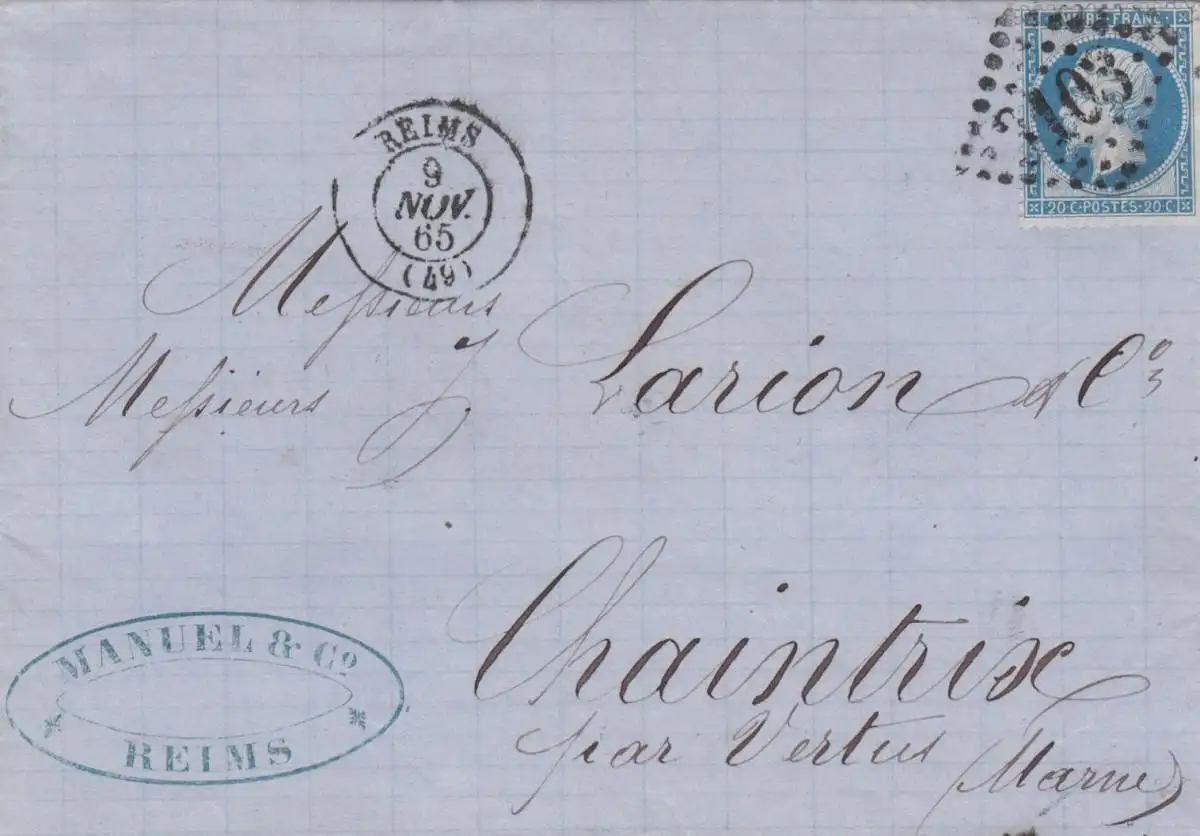 EMPIRE·FRANC·
3103
20·C·POSTES·20·C
REIMS
9
NOV.
65
(49)
Messieurs
Messieurs Larion & Co
Chaintrix
par Vertus (Marne)
MANUEL & Co
REIMS